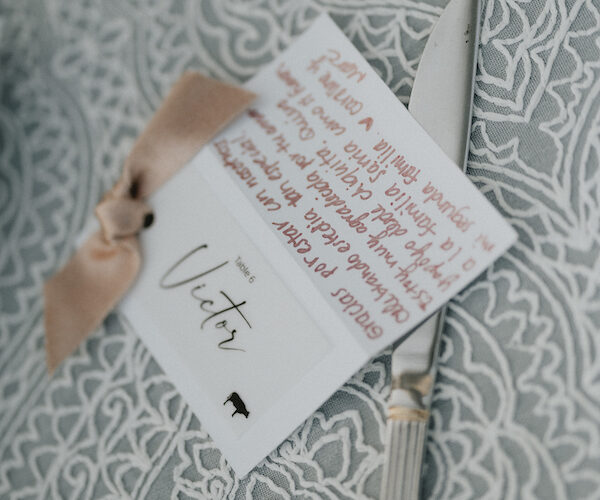 Gracias por estar con nosotros
celebrando este dia tan especial!
Estoy muy agradecida por tu amor
y apoyo desde chiquita. Quiero
a la familia como si fuera
mi segunda familia. ♥ y
Table 6
Victor